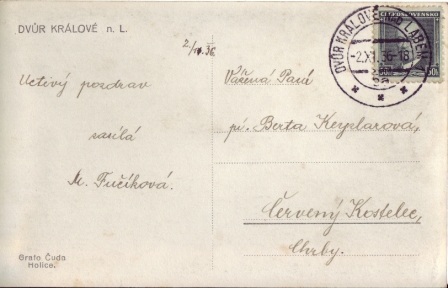 DVŮR KRÁLOVÉ n. L.
2/XI. 36.
Uctivý pozdrav
zasílá
M. Fučíková.
Grafo Čuda
Holice.
ČESKOSLOVENSKO
DVŮR KRÁLOVÉ NAD LABEM
-2.XI.36-18
Vážená Paní
pí. Berta Keyplarová,
Červený Kostelec,
Chrby.